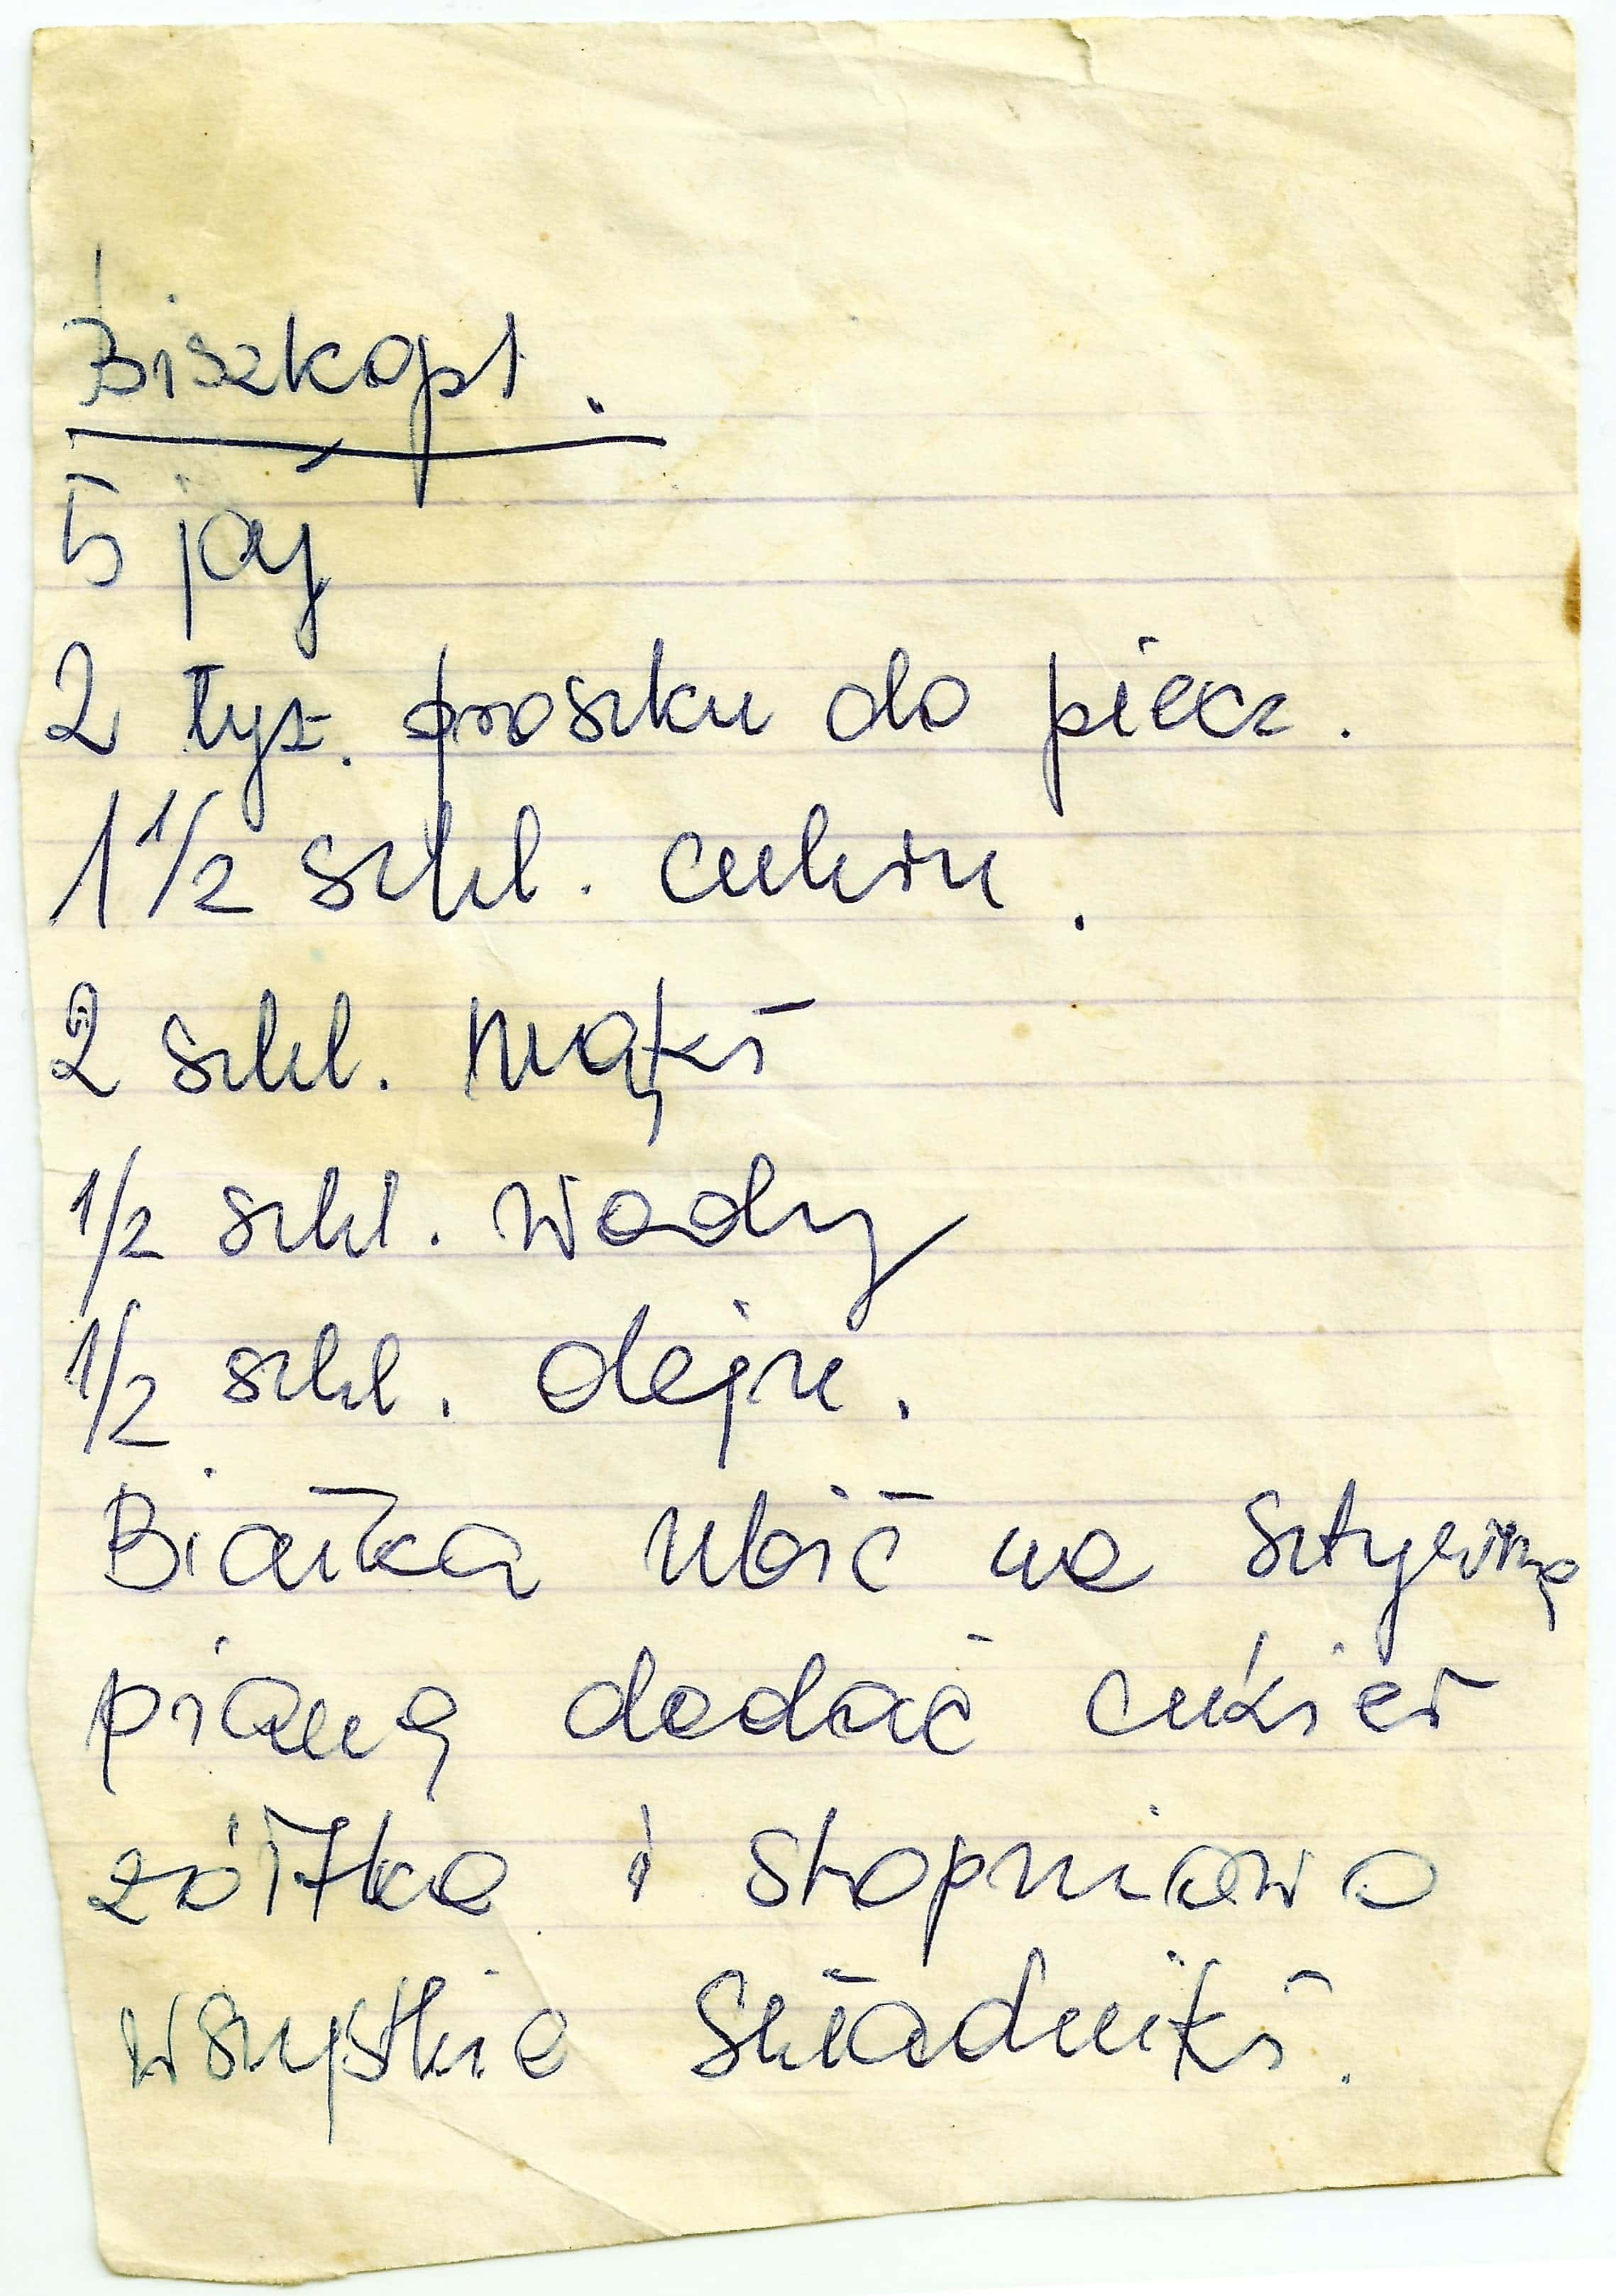 Biszkopt.
5 jaj
2 łyż. proszku do piecz.
1 1/2 szkl. cukru.
2 szkl. mąki
1/2 szkl. wody
1/2 szkl. oleju.
Białka ubić na sztywną
pianę dodać cukier
żółtka i stopniowo
wszystkie składniki.